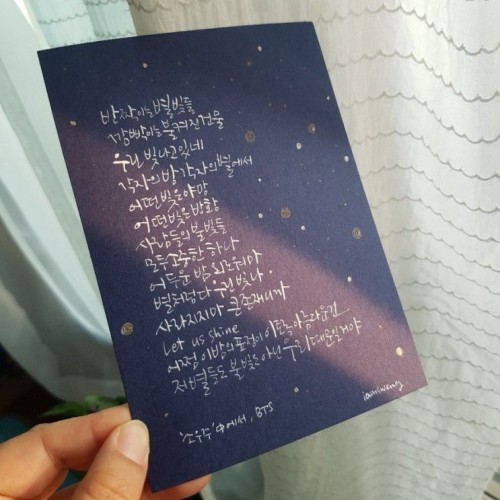 반짝이는 별빛들
깜빡이는 불 켜진 건물
우린 빛나고 있네
각자의 방 각자의 별에서
어떤 빛은 야망
어떤 빛은 방황
사람들의 불빛들
모두 소중한 하나
어두운 밤 외로워 마
별처럼 다 우린 빛나
사라지지 마 큰 존재니까
Let us shine
어쩜 이 밤의 표정이 이토록 아름다운 건
저 별들도 불빛도 아닌 우리 때문일 거야
'소우주' 中에서, BTS